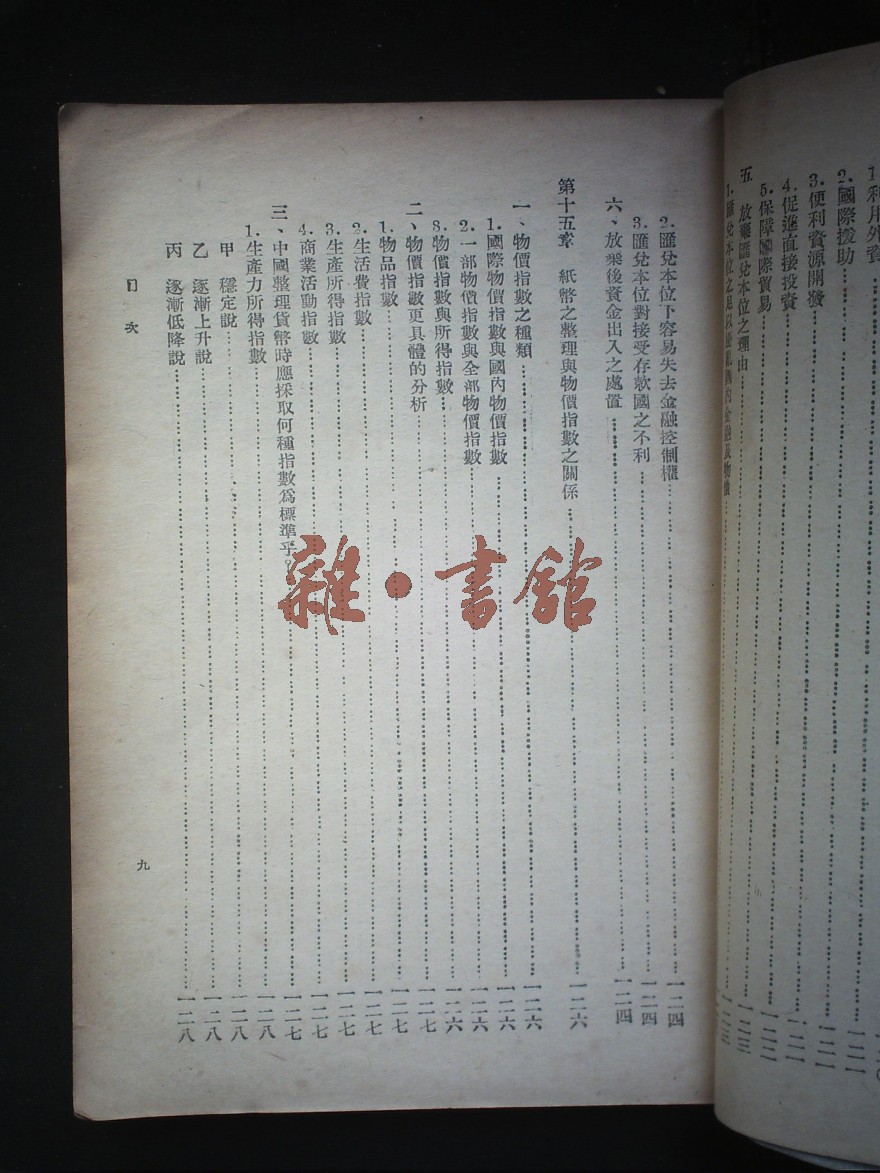 利用外資
2.國際援助
3.便利資源開發
4.促進直接投資
5.保障國際貿易
五 放棄匯兌本位之理由
1.匯兌本位之足以
2.匯兌本位下容易失去金融控制權……一二四
3.匯兌本位對接受存款國之不利……一二四
六、放棄後資金出入之處置……一二四
第十五章 紙幣之整理與物價指數之關係……一二六
一、物價指數之種類……一二六
1.國際物價指數與國內物價指數……一二六
2.一部物價指數與全部物價指數……一二六
3.物價指數與所得指數……一二六
二、物價指數更具體的分析……一二七
1.物品指數……一二七
2.生活費指數……一二七
3.生產所得指數……一二七
4.商業活動指數……一二七
三、中國整理貨幣時應採取何種指數爲標準乎……一二七
1.生產力所得指數……一二八
甲 穩定說……一二八
乙 逐漸上升說……一二八
丙 逐漸低降說……一二八
目次
九
雜·書舘